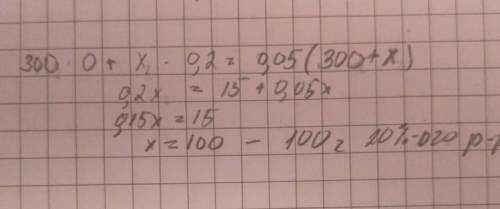 300 · 0 + x · 0,2 = 0,05 (300 + x)
0,2x = 15 + 0,05x
0,15x = 15
x = 100 - 100г 20%-ого р-